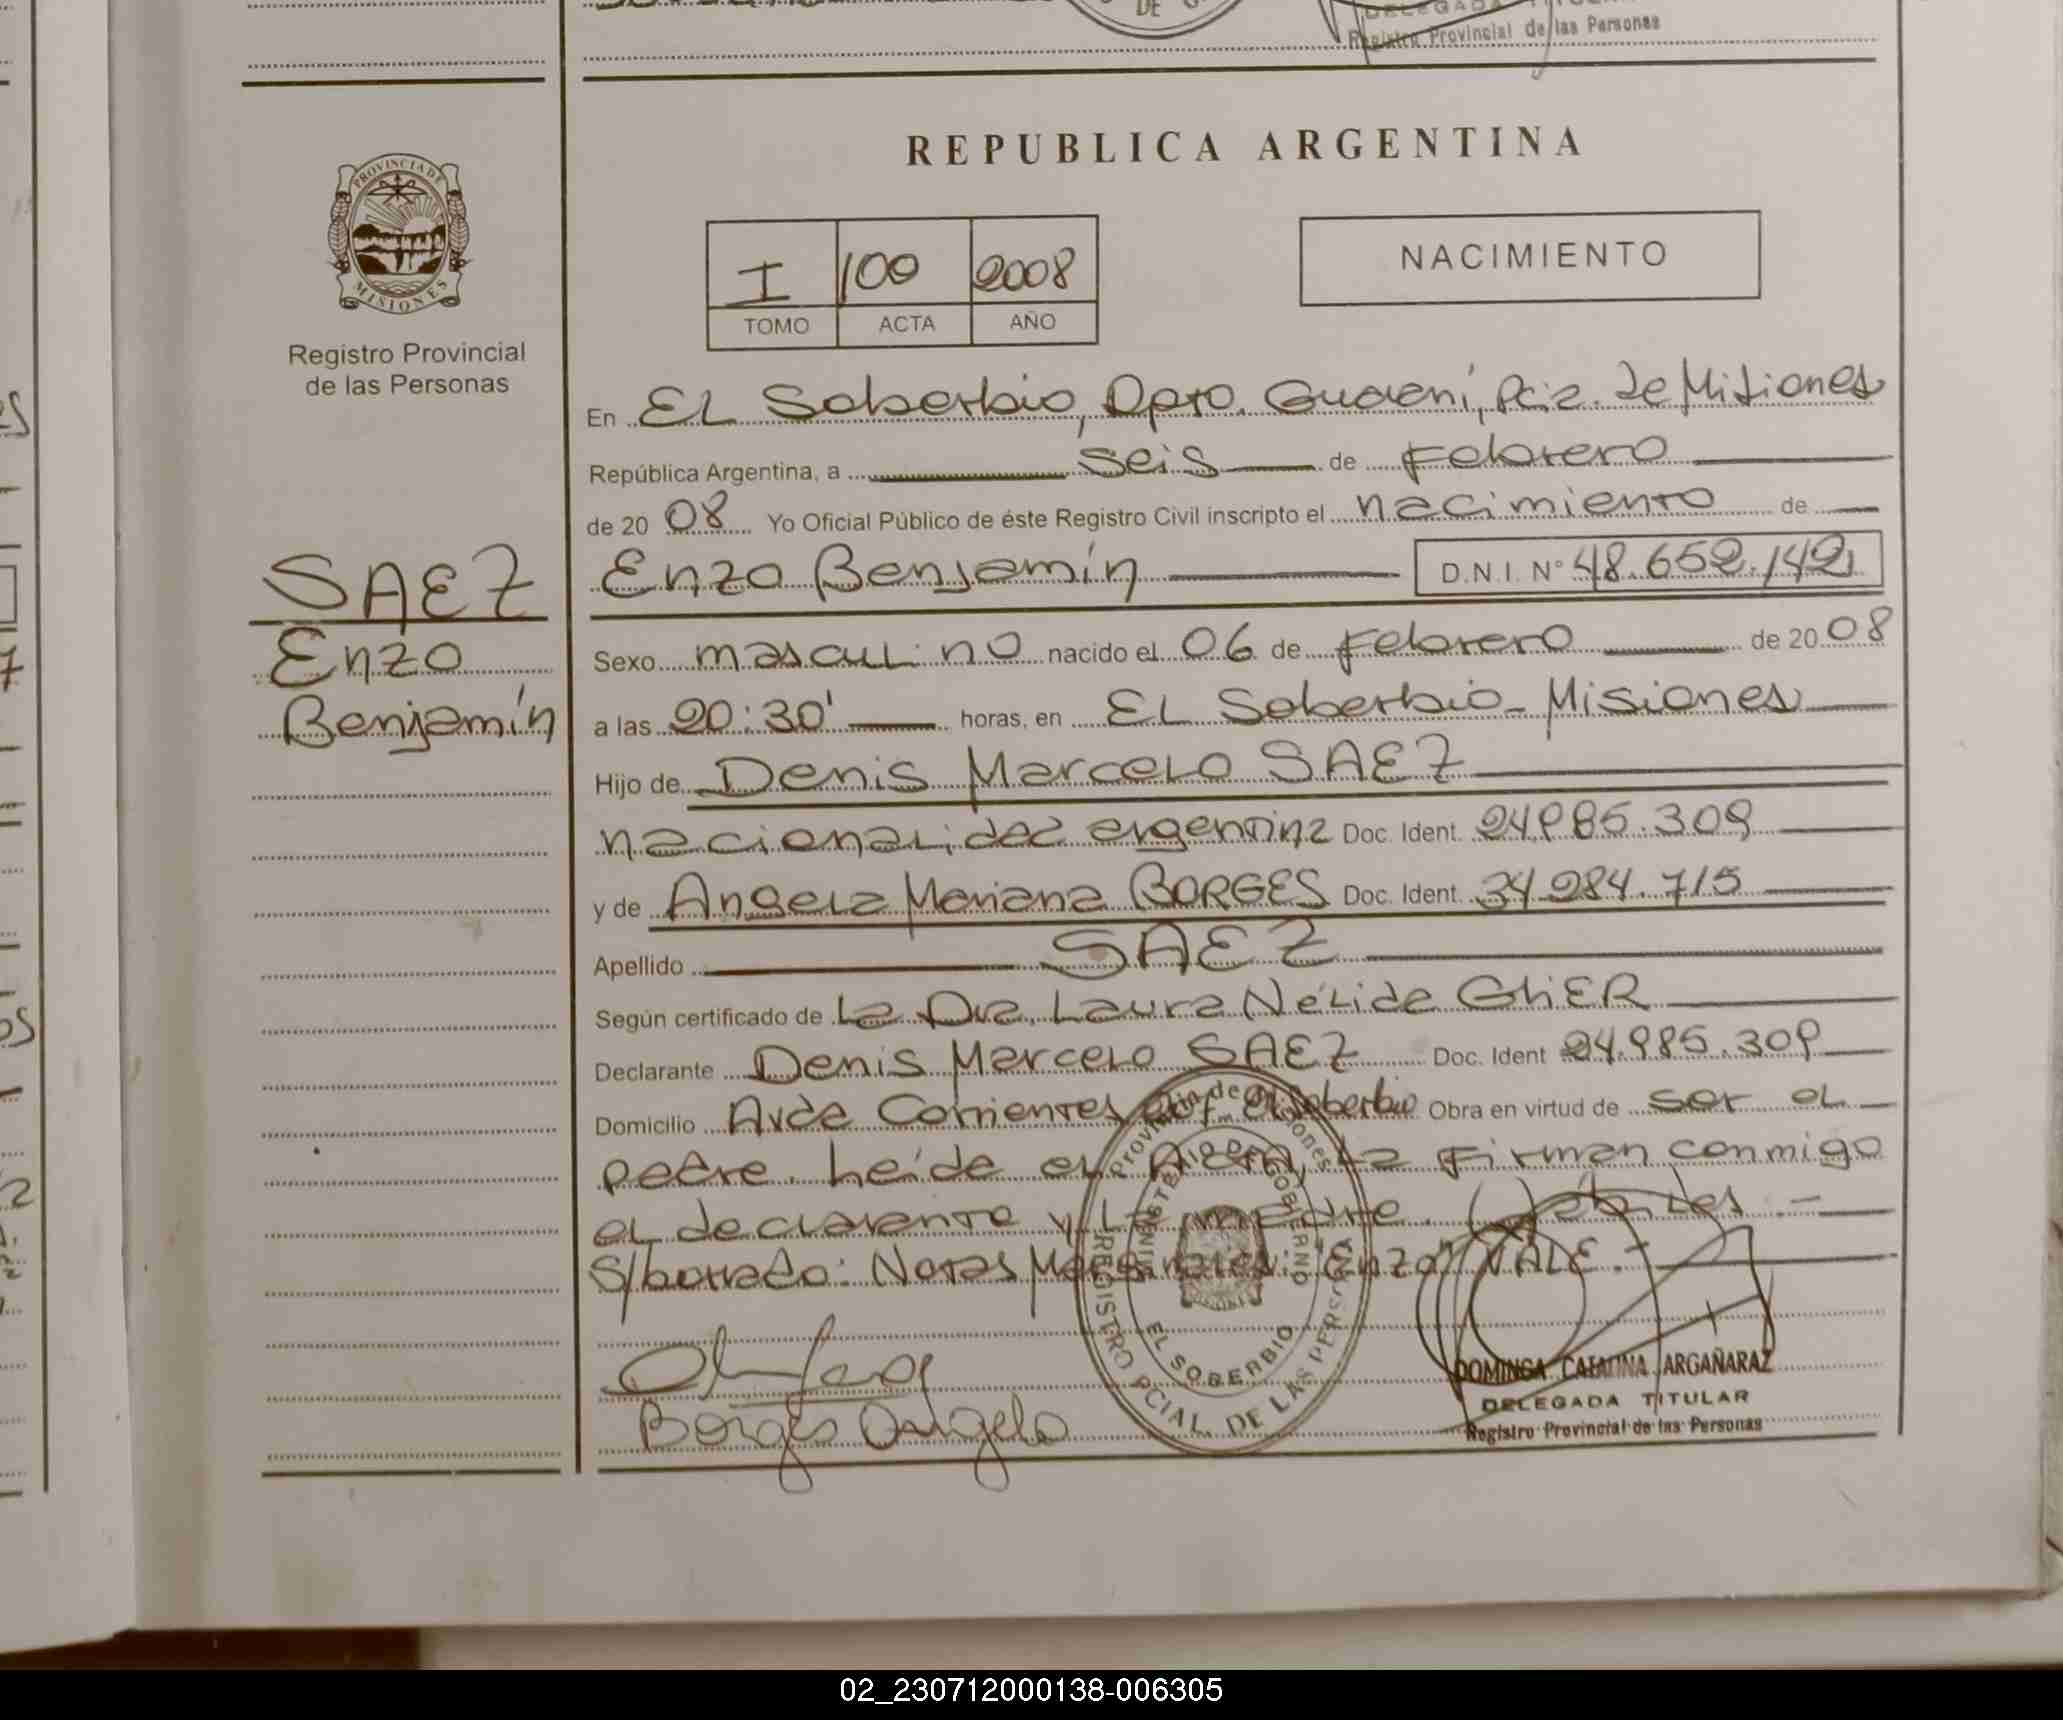 DELEGADA TITULAR
Registro Provincial de las Personas
REPUBLICA ARGENTINA
PROVINCIA DE
MISIONES
Registro Provincial
de las Personas
I 100 2008
TOMO ACTA AÑO
NACIMIENTO
En EL Soberbio, Dpto. Guaraní, Pcia. de Misiones
República Argentina, a seis de Febrero
de 20 08 Yo Oficial Público de éste Registro Civil inscripto el nacimiento de
Enzo Benjamín D.N.I. N° 48.652.142
SAEZ
Enzo
Benjamín
Sexo masculino nacido el 06 de Febrero de 20 08
a las 20:30' horas, en EL Soberbio - Misiones
Hijo de Denis Marcelo SAEZ
nacionalidad argentina Doc. Ident. 24.985.309
y de Angela Mariana BORGES Doc. Ident. 34.984.715
Apellido SAEZ
Según certificado de La Dra. Laura Nélida GHIER
Declarante Denis Marcelo SAEZ Doc. Ident 24.985.309
Domicilio Avda Corrientes El Soberbio Obra en virtud de ser el
padre. Leída el Acta, la firman conmigo
el declarante y la madre.
S/borrado: Notas Marginales: "Enzo" VALE.-
Provincia de Misiones
MINISTERIO GOBIERNO
EL SOBERBIO
REGISTRO PCIAL. DE LAS PERSONAS
Borges Angela
DOMINGA CATALINA ARGAÑARAZ
DELEGADA TITULAR
Registro Provincial de las Personas
02_230712000138-006305